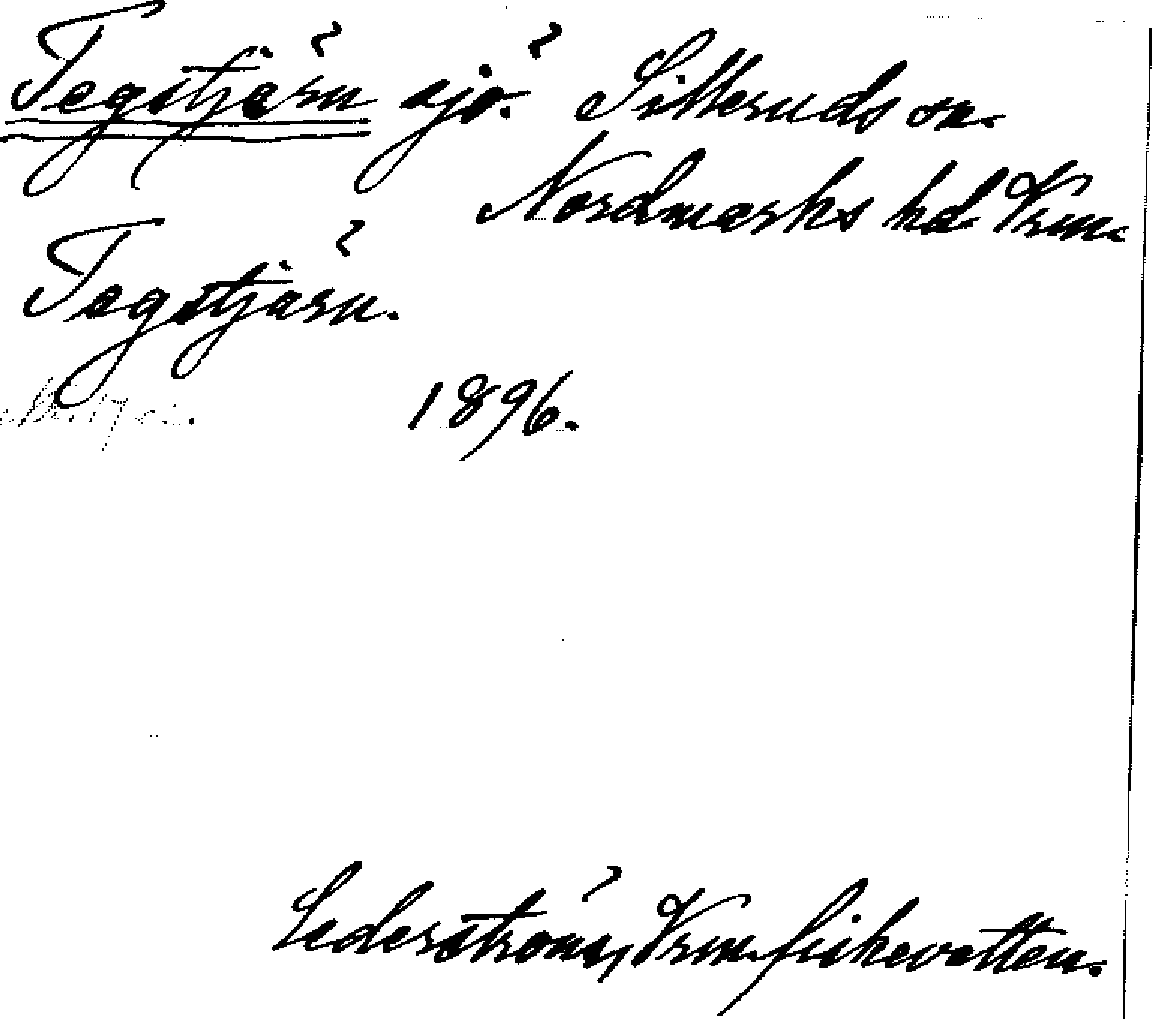 Tegstjärn sjö. Silleruds sn.
Nordmarks hd. Vrm.
Tegstjärn.
1896.
Cederström, Vrm. fiskevatten.